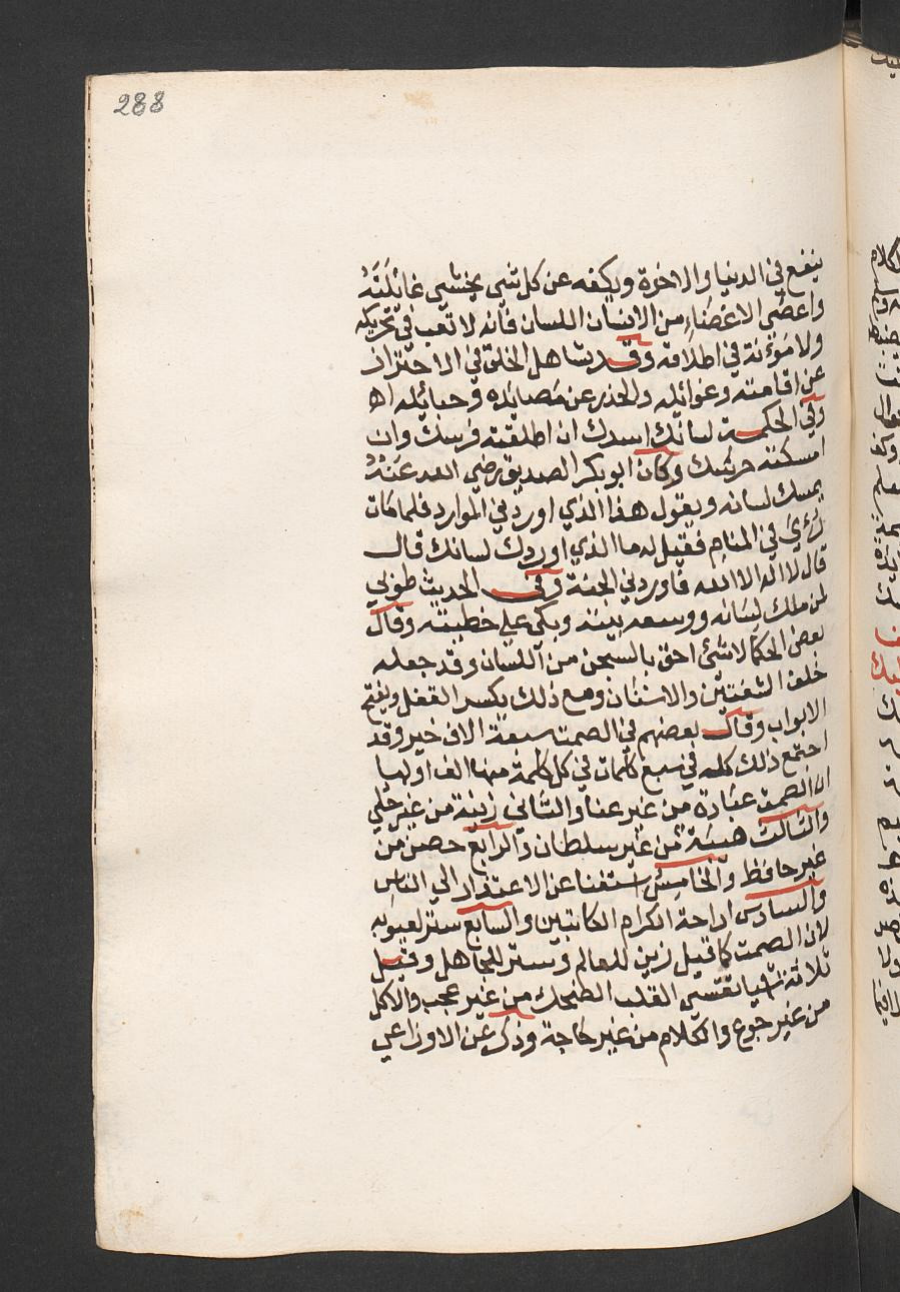 288
ينفع في الدنيا والاخرة ويكفه عن كل شي يخشى غائلته
واعصى الاعضاء من الانسان اللسان فانه لا تعب في تحريكه
ولا مؤنة في اطلاقه وقد تساهل الخلق في الاحتراز
عن افامته وغوائله والحذر عن مصائده وحبائله اه
وفي الحكمة لسانك اسدك ان اطلقته فرسك وان
امسكته حرسك وكان ابو بكر الصديق رضي الله عنه
يمسك لسانه ويقول هذا الذي اوردني الموارد فلما مات
رئي في المنام فقيل له ما الذي اوردك لسانك قال
قال لا اله الا الله فاوردني الجنة وفي الحديث طوبي
لمن ملك لسانه ووسعه بيته وبكى على خطيئته وقال
بعض الحكما لا شئ احق بالسجن من اللسان وقد جعله
خلف الشفتين والاسنان ومع ذلك يكسر القفل ويفتح
الابواب وقال بعضهم في الصمت سبعة الاف خير وقد
اجتمع ذلك كله في سبع كلمات في كل كلمة منها الف اولها
ان الصمت عبادة من غير عنا والثاني زينة من غير حلي
والثالث هيبة من غير سلطان والرابع حصن من
غير حافظ والخامس استغنا عن الاعتذار الي الناس
والسادس اراحة الكرام الكاتبين والسابع ستر لعيوبه
لان الصمت كما قيل زين للعالم وستر للجاهل وقيل
ثلاثة اشيا تقسي القلب الضحك من غير عجب والاكل
من غير جوع والكلام من غير حاجة وذكر عن الاوزاعي